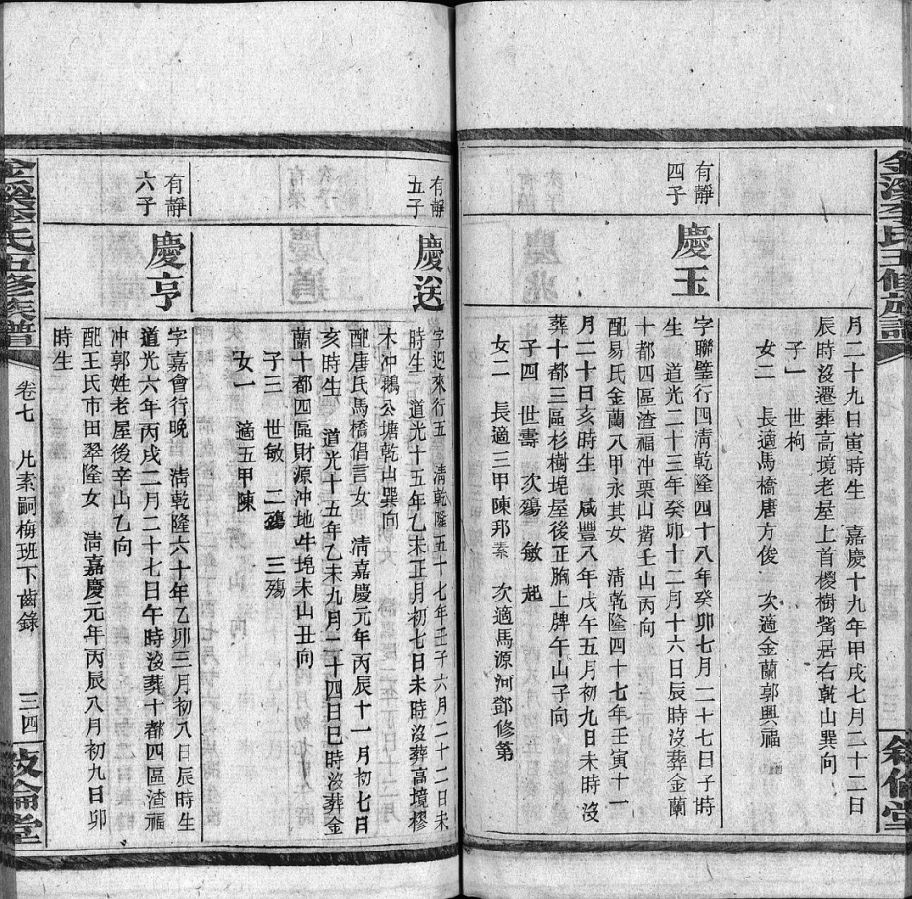 月二十九日寅時生　嘉慶十九年甲戌七月二十二日
辰時沒遷葬高境老屋上首椶樹觜居右乾山巽向
子一　世枸
女二　長適馬橋唐方俊　次適金蘭郭興福
有靜
四子
慶玉
字聯璧行四淸乾隆四十八年癸卯七月二十七日子時
生　道光二十三年癸卯十二月十六日辰時沒葬金蘭
十都四區渣福冲栗山觜壬山丙向
配易氏金蘭八甲永其女　淸乾隆四十七年壬寅十一
月二十日亥時生　咸豐八年戊午五月初九日未時沒
葬十都三區杉樹埦屋後正胸上牌午山子向
子四　世壽　次鷄　敏　起
女二　長適三甲陳邦素　次適馬源河鄧修第
有靜
五子
慶送
字迎來行五　淸乾隆五十七年壬子六月二十二日未
時生　道光十五年乙未正月初七日未時沒葬高境樛
木冲鵝公塘乾山巽向
配唐氏馬橋倡言女　淸嘉慶元年丙辰十一月初七日
亥時生　道光十五年乙未九月二十四日巳時沒葬金
蘭十都四區財源冲地牛埦未山丑向
子三　世敏　二　三殤
女一　適五甲陳
有靜
六子
慶亨
字嘉會行晚　淸乾隆六十年乙卯三月初八日辰時生
道光六年丙戌二月二十七日午時沒葬十都四區渣福
冲郭姓老屋後辛山乙向
配王氏市田翠隆女　淸嘉慶元年丙辰八月初九日卯
時生
金溪李氏五修族譜
卷七　允素嗣梅班下齒錄　三四
敘倫堂